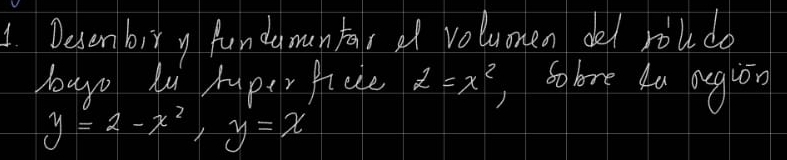 1. Describir y fundamentar el volumen del sólido
bajo la superficie z = x², sobre la región
y = 2 - x², y = x